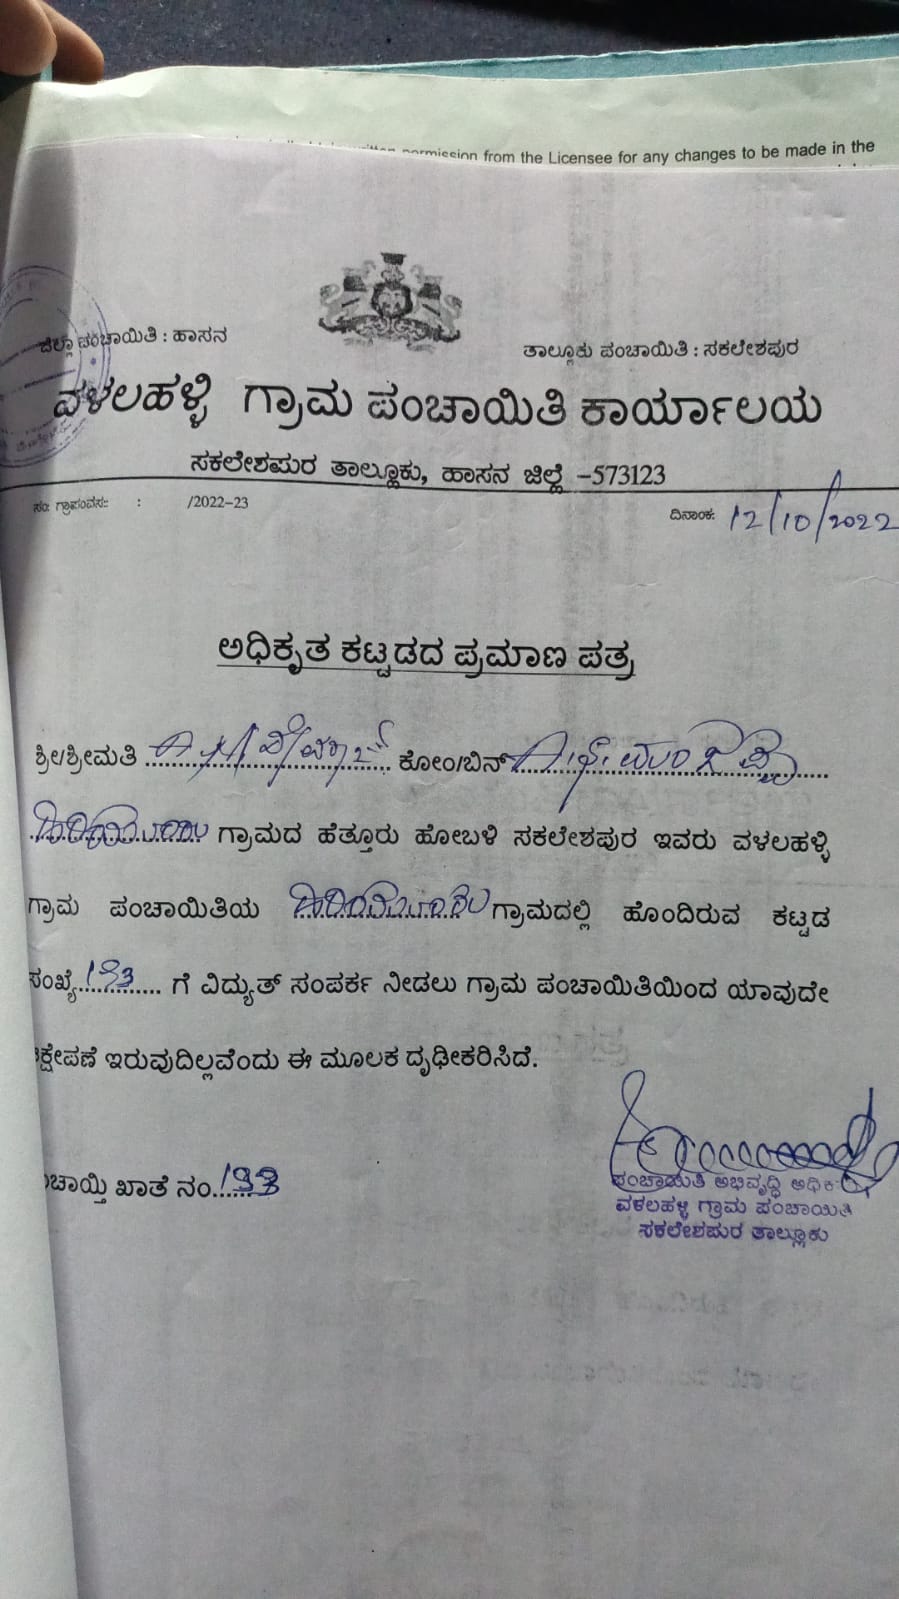 permission from the Licensee for any changes to be made in the
ಜಿಲ್ಲಾ ಪಂಚಾಯಿತಿ : ಹಾಸನ
ತಾಲ್ಲೂಕು ಪಂಚಾಯಿತಿ : ಸಕಲೇಶಪುರ
ವಳಲಹಳ್ಳಿ ಗ್ರಾಮ ಪಂಚಾಯಿತಿ ಕಾರ್ಯಾಲಯ
ಸಕಲೇಶಪುರ ತಾಲ್ಲೂಕು, ಹಾಸನ ಜಿಲ್ಲೆ -573123
ಸಂ: ಗ್ರಾಪಂವಸ: : /2022-23 ದಿನಾಂಕ: 12/10/2022
ಅಧಿಕೃತ ಕಟ್ಟಡದ ಪ್ರಮಾಣ ಪತ್ರ
ಶ್ರೀ/ಶ್ರೀಮತಿ ಕೋಂ/ಬಿನ್
ಗ್ರಾಮದ ಹೆತ್ತೂರು ಹೋಬಳಿ ಸಕಲೇಶಪುರ ಇವರು ವಳಲಹಳ್ಳಿ
ಗ್ರಾಮ ಪಂಚಾಯಿತಿಯ ಗ್ರಾಮದಲ್ಲಿ ಹೊಂದಿರುವ ಕಟ್ಟಡ
ಸಂಖ್ಯೆ ಗೆ ವಿದ್ಯುತ್ ಸಂಪರ್ಕ ನೀಡಲು ಗ್ರಾಮ ಪಂಚಾಯಿತಿಯಿಂದ ಯಾವುದೇ
ಕ್ಷೇಪಣೆ ಇರುವುದಿಲ್ಲವೆಂದು ಈ ಮೂಲಕ ದೃಢೀಕರಿಸಿದೆ.
ಚಾಯ್ತಿ ಖಾತೆ ನಂ.
ಪಂಚಾಯತಿ ಅಭಿವೃದ್ಧಿ
ವಳಲಹಳ್ಳಿ ಗ್ರಾಮ ಪಂಚಾಯಿತಿ
ಸಕಲೇಶಪುರ ತಾಲ್ಲೂಕು